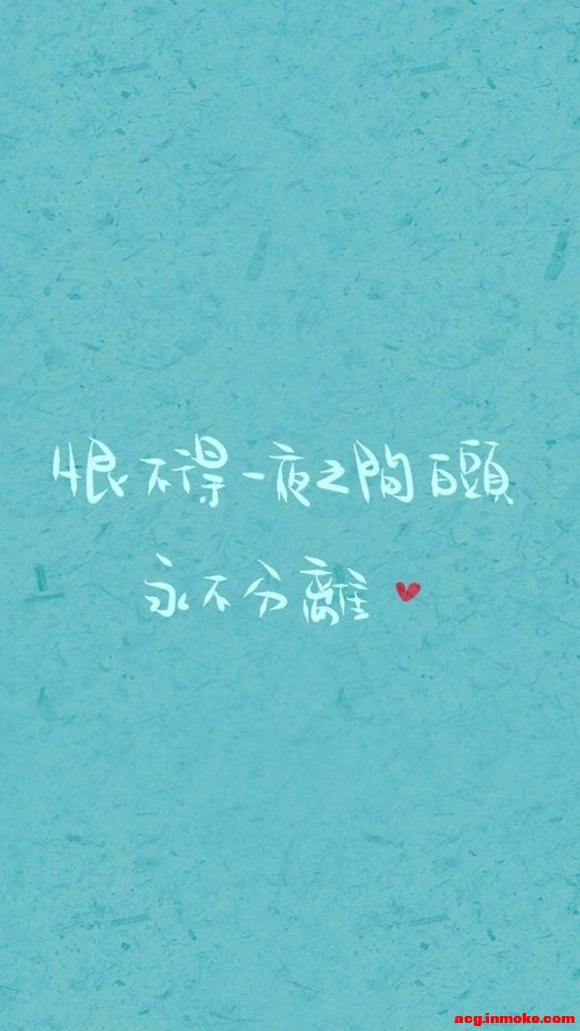 恨不得一夜之間白頭
永不分離
acg.inmoke.com